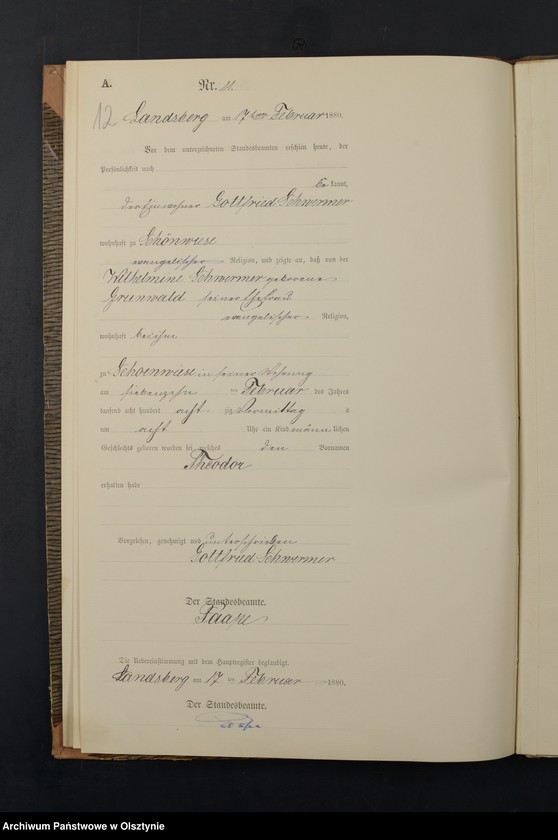 A.
Nr. 11.
12
Landsberg am 17ten Februar 1880.
Vor dem unterzeichneten Standesbeamten erschien heute, der
Persönlichkeit nach
be kannt,
der Einwohner Gottfried Schwermer
wohnhaft zu Schönwiese
evangelischer Religion, und zeigte an, daß von der
Wilhelmine Schwermer geborene
Grunwald seiner Ehefrau
evangelischer Religion,
wohnhaft bei ihm
zu Schoenwiese in seiner Wohnung
am siebenzehn ten Februar des Jahres
tausend acht hundert acht zig Vormittag s
um acht Uhr ein Kind männ lichen
Geschlechts geboren worden sei, welches den Vornamen
Theodor
erhalten habe
Vorgelesen, genehmigt und unterschrieben
Gottfried Schwermer
Der Standesbeamte.
Die Uebereinstimmung mit dem Hauptregister beglaubigt.
Landsberg am 17 ten Februar 1880.
Der Standesbeamte.
Archiwum Państwowe w Olsztynie